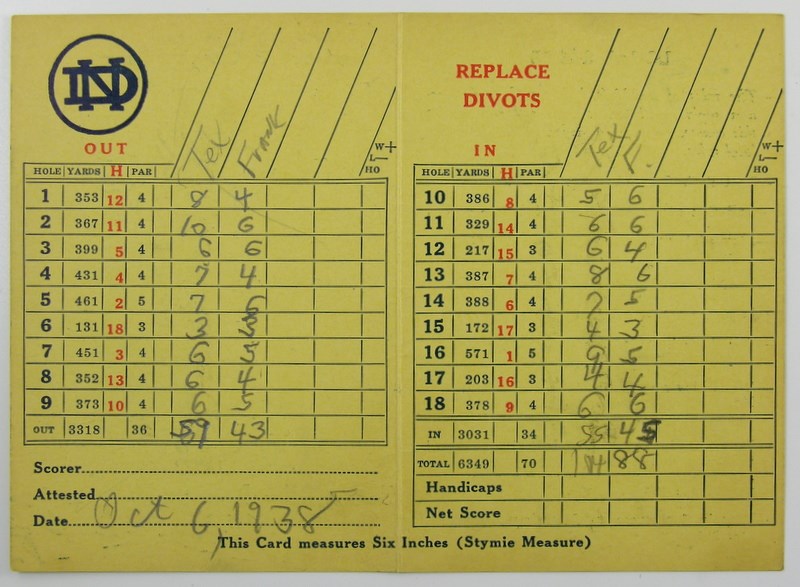 ND
OUT Tex Frank W+ L- HO
HOLE YARDS H PAR
1 353 12 4 8 4
2 367 11 4 10 6
3 399 5 4 6 6
4 431 4 4 7 4
5 461 2 5 7 6
6 131 18 3 3 3
7 451 3 4 6 5
8 352 13 4 6 4
9 373 10 4 6 5
OUT 3318 36 59 43
Scorer
Attested
Date Oct 6, 1938
REPLACE
DIVOTS
IN Tex F. W+ L- HO
HOLE YARDS H PAR
10 386 8 4 5 6
11 329 14 4 6 6
12 217 15 3 6 4
13 387 7 4 8 6
14 388 6 4 7 5
15 172 17 3 4 3
16 571 1 5 9 5
17 203 16 3 4 4
18 378 9 4 6 6
IN 3031 34 55 45
TOTAL 6349 70 114 88
Handicaps
Net Score
This Card measures Six Inches (Stymie Measure)